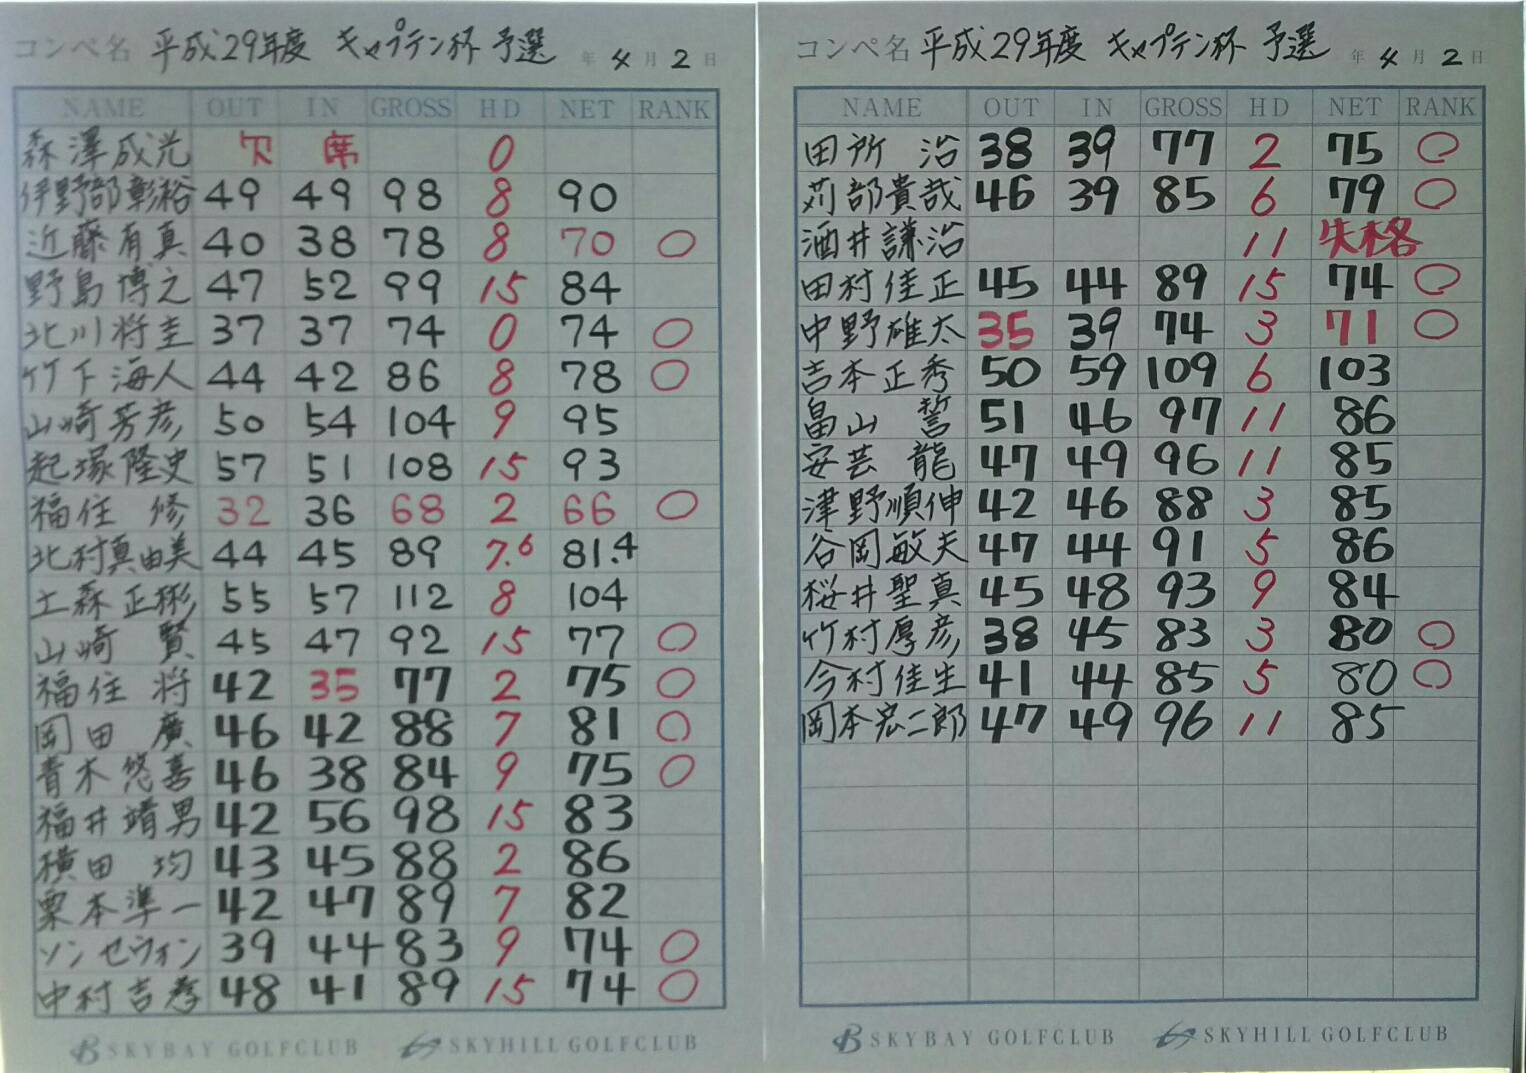 コンペ名 平成29年度 キャプテン杯 予選 年 4 月 2 日
NAME OUT IN GROSS HD NET RANK
森澤成光 欠 席 0
伊野部彰裕 49 49 98 8 90
近藤有真 40 38 78 8 70 ○
野島博之 47 52 99 15 84
北川将圭 37 37 74 0 74 ○
竹下海人 44 42 86 8 78 ○
山崎芳彦 50 54 104 9 95
起塚隆史 57 51 108 15 93
福住 修 32 36 68 2 66 ○
北村真由美 44 45 89 7.6 81.4
土森正彬 55 57 112 8 104
山崎 賢 45 47 92 15 77 ○
福住 将 42 35 77 2 75 ○
岡田 廣 46 42 88 7 81 ○
青木悠喜 46 38 84 9 75 ○
福井靖男 42 56 98 15 83
横田 均 43 45 88 2 86
栗本準一 42 47 89 7 82
ソンセウォン 39 44 83 9 74 ○
中村吉孝 48 41 89 15 74 ○
B SKYBAY GOLFCLUB SKYHILL GOLFCLUB
コンペ名 平成29年度 キャプテン杯 予選 年 4 月 2 日
NAME OUT IN GROSS HD NET RANK
田所 治 38 39 77 2 75 ○
苅部貴哉 46 39 85 6 79 ○
酒井謙治 11 失格
田村佳正 45 44 89 15 74 ○
中野雄太 35 39 74 3 71 ○
吉本正秀 50 59 109 6 103
畠山 誓 51 46 97 11 86
安芸 龍 47 49 96 11 85
津野順伸 42 46 88 3 85
谷岡敏夫 47 44 91 5 86
桜井聖真 45 48 93 9 84
竹村厚彦 38 45 83 3 80 ○
今村佳生 41 44 85 5 80 ○
岡本宏二郎 47 49 96 11 85
B SKYBAY GOLFCLUB SKYHILL GOLFCLUB